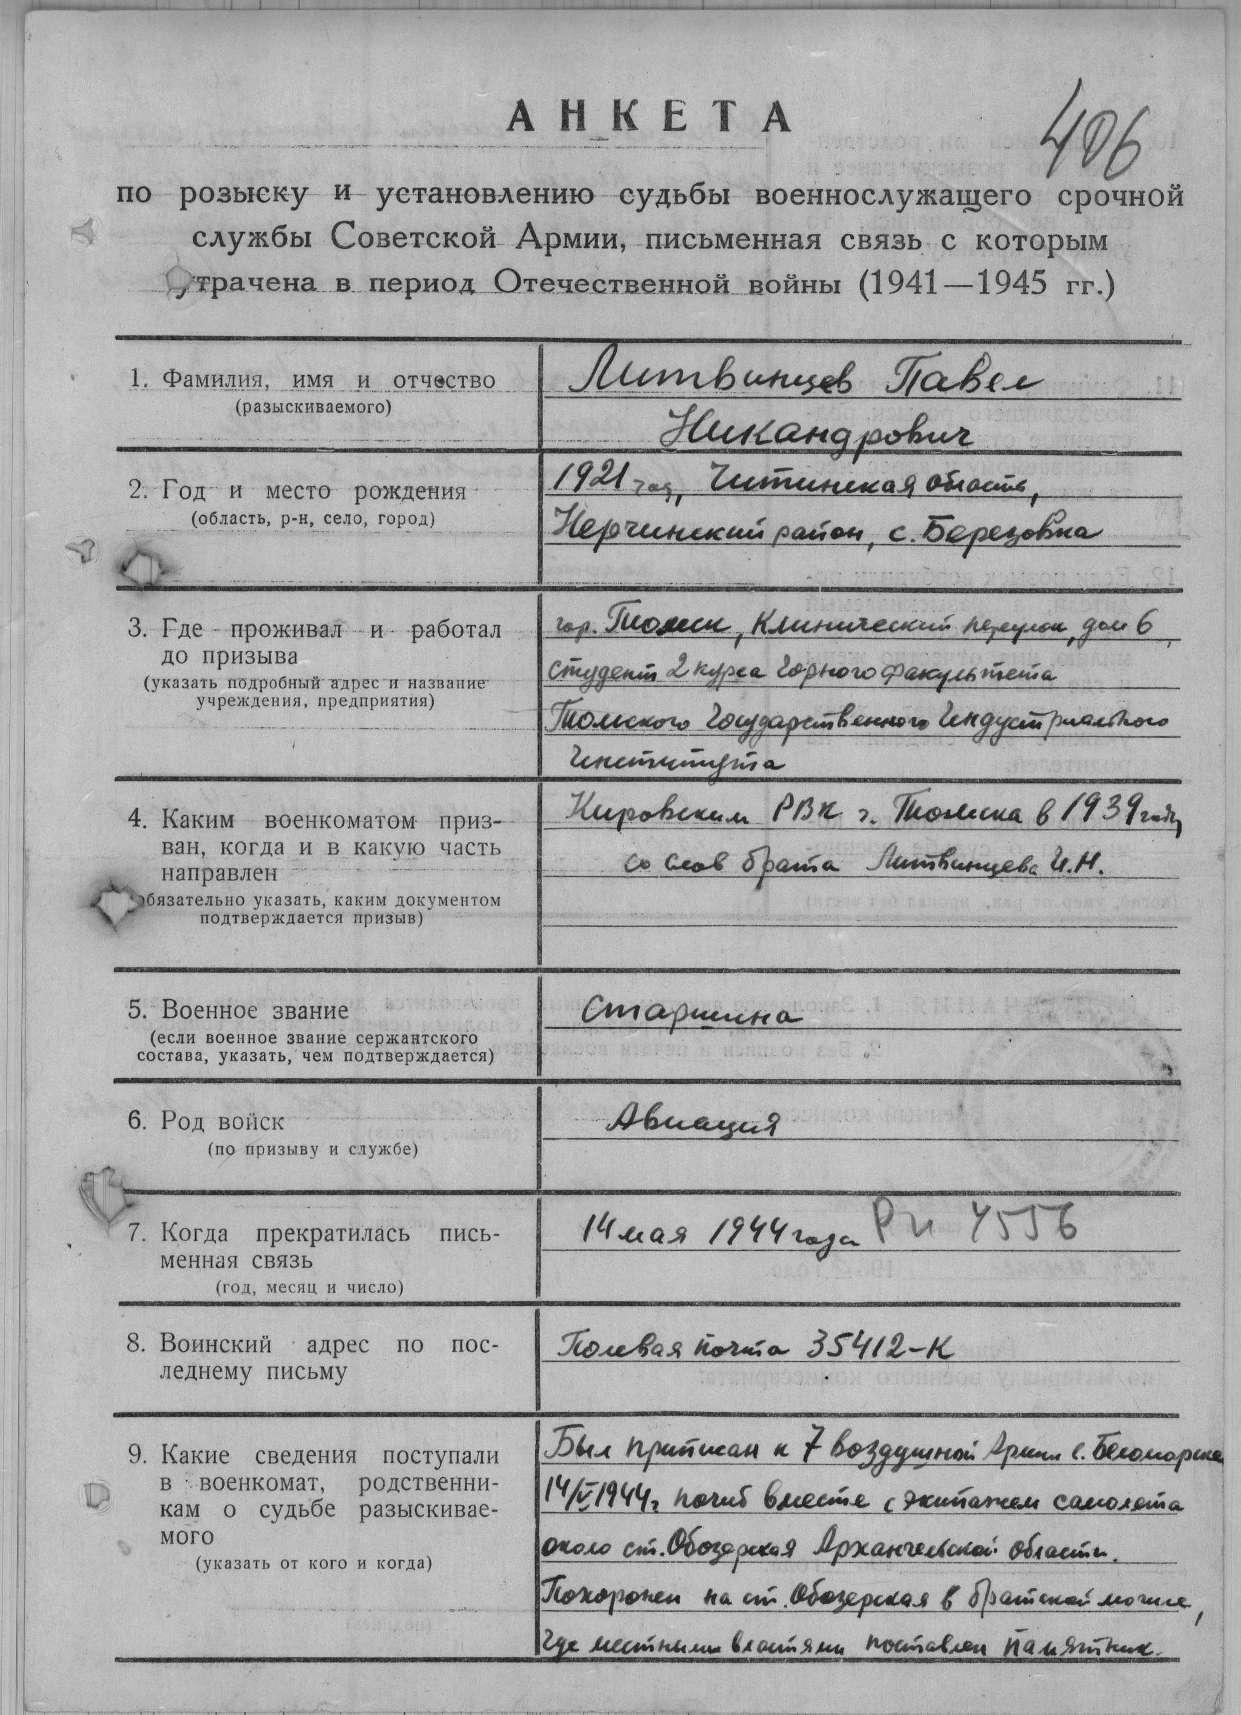 АНКЕТА
406
по розыску и установлению судьбы военнослужащего срочной
службы Советской Армии, письменная связь с которым
утрачена в период Отечественной войны (1941—1945 гг.)
1. Фамилия, имя и отчество
(разыскиваемого)
Литвинцев Павел
Никандрович
2. Год и место рождения
(область, р-н, село, город)
1921 год, Читинская область,
Нерчинский район, с. Березовка
3. Где проживал и работал
до призыва
(указать подробный адрес и название
учреждения, предприятия)
гор. Томск, Клинический переулок, дом 6,
студент 2 курса Горного факультета
Томского Государственного Индустриального
Института
4. Каким военкоматом приз-
ван, когда и в какую часть
направлен
обязательно указать, каким документом
подтверждается призыв)
Кировским РВК г. Томска в 1939 году,
со слов брата Литвинцева И.Н.
5. Военное звание
(если военное звание сержантского
состава, указать, чем подтверждается)
Старшина
6. Род войск
(по призыву и службе)
Авиация
7. Когда прекратилась пись-
менная связь
(год, месяц и число)
14 мая 1944 года
8. Воинский адрес по пос-
леднему письму
Полевая почта 35412-К
9. Какие сведения поступали
в военкомат, родственни-
кам о судьбе разыскивае-
мого
(указать от кого и когда)
Был приписан к 7 воздушной Армии г. Беломорска
14/V 1944г. погиб вместе с экипажем самолета
около ст. Обозерская Архангельской области.
Похоронен на ст. Обозерская в братской могиле,
где местными властями поставлен памятник.